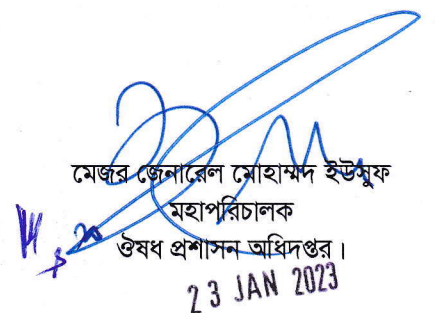 মেজর জেনারেল মোহাম্মদ ইউসুফ
মহাপরিচালক
ঔষধ প্রশাসন অধিদপ্তর।
23 JAN 2023